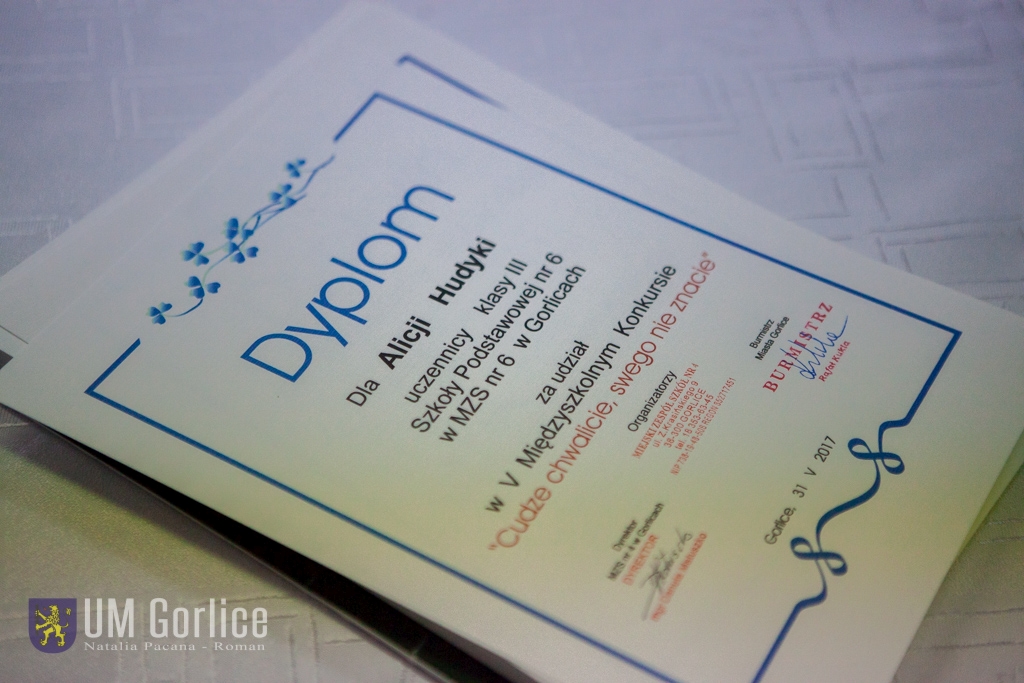 Dyplom
Dla Alicji Hudyki
uczennicy klasy III
Szkoły Podstawowej nr 6
w MZS nr 6 w Gorlicach
za udział
w V Międzyszkolnym Konkursie
"Cudze chwalicie, swego nie znacie"
Organizatorzy
MIEJSKI ZESPÓŁ SZKÓŁ NR 4
ul. Z. Krasińskiego 9
38-300 GORLICE
tel. 18 353-63-45
Dyrektor
MZS nr 4 w Gorlicach
DYREKTOR
Burmistrz
Miasta Gorlice
BURMISTRZ
Rafał Kukla
Gorlice, 31 V 2017
UM Gorlice
Natalia Pacana - Roman